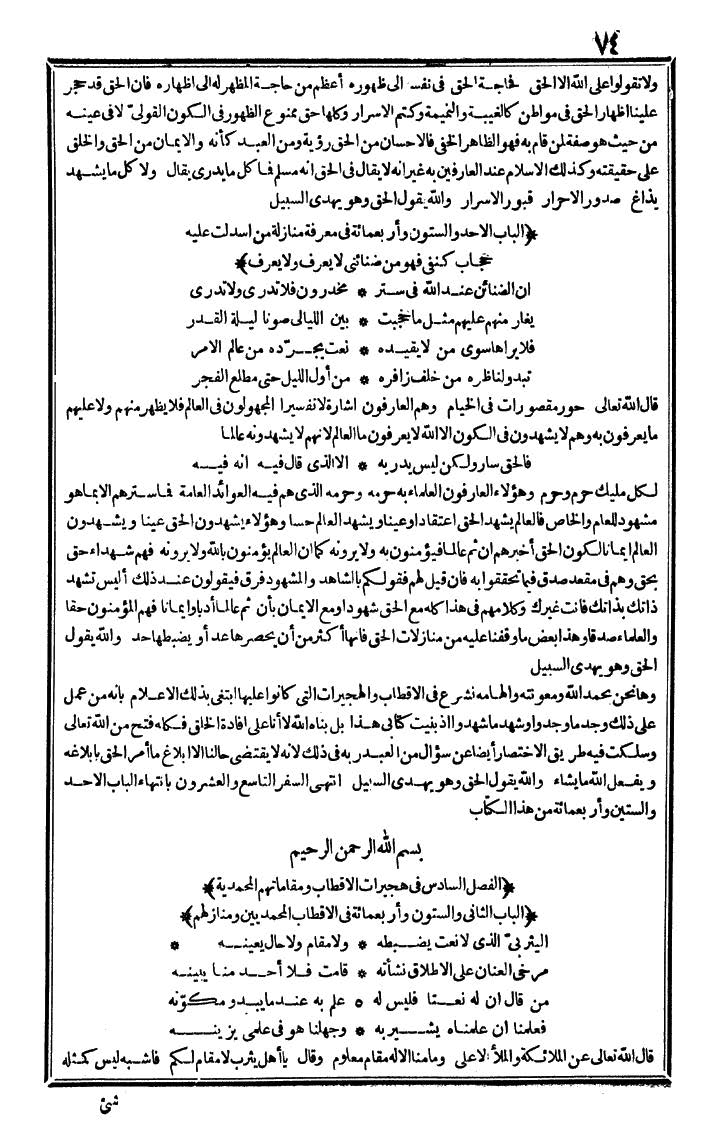 ٧٤
ولا تقولوا على الله الا الحق فحاجة الحق فى نفسه الى ظهوره أعظم من حاجة المظهر له الى اظهاره فان الحق قد حجر
علينا اظهار الحق فى مواطن كالغيبة والنميمة وكتم الاسرار وكلها حق ممنوع الظهور فى الكون القولىّ لا فى عينه
من حيث هو صفة لمن قام به فهو الظاهر الخفى فالاحسان من الحق رؤية ومن العبد كأنه والايمان من الحق والخلق
على حقيقته وكذلك الاسلام عند العارفين به غير انه لا يقال فى الحق انه مسلم فما كل ما يدرى يقال ولا كل ما يشهد
يذاع صدور الاحرار قبور الاسرار والله يقول الحق وهو يهدى السبيل
﴿الباب الاحد والستون وأربعمائة فى معرفة منازلة من اسدلت عليه
حجاب كنفى فهو من ضنائنى لا يعرف ولا يعرف﴾
ان الضنائن عند الله فى ستر * مخدرون فلا تدرى ولا تدرى
يغار منهم عليهم مثل ما حجبت * بين الليالى صونا ليلة القدر
فلا يراها سوى من لا يقيده * نعت يجرّده من عالم الامر
تبدو لناظره من خلف زافره * من أول الليل حتى مطلع الفجر
قال الله تعالى حور مقصورات فى الخيام وهم العارفون اشارة لا تفسيرا المجهولون فى العالم فلا يظهر منهم ولا عليهم
ما يعرفون به وهم لا يشهدون فى الكون الا الله لا يعرفون ما العالم لانهم لا يشهدونه عالما
فالحق سار ولكن ليس يدر به * الا الذى قال فيه انه فيه
لكل مليك حرم وحرم وهؤلاء العارفون العلماء به حرمه وحرمه الذى هم فيه العوائد العامة فما سترهم الا بما هو
مشهود للعام والخاص فالعالم يشهد الحق اعتقادا وعينا ويشهد العالم حسا وهؤلاء يشهدون الحق عينا ويشهدون
العالم ايمانا لكون الحق أخبرهم ان ثم عالما فيؤمنون به ولا يرونه كما ان العالم يؤمنون بالله ولا يرونه فهم شهداء حق
بحق وهم فى مقعد صدق فيما تحققوا به فان قيل لهم فقولكم بالشاهد والمشهود فرق فيقولون عند ذلك أليس تشهد
ذاتك بذاتك فانت غيرك وكلامهم فى هذا كله مع الحق شهودا ومع الايمان بأن ثم عالما أدبا وايمانا فهم المؤمنون حقا
والعلماء صدقا وهذا بعض ما وقفنا عليه من منازلات الحق فانها أكثر من أن يحصرها عد أو يضبطها حد والله يقول
الحق وهو يهدى السبيل
وها نحن بحمد الله ومعونته والهامه نشرع فى الاقطاب والهجيرات التى كانوا عليها ابتغى بذلك الاعلام بانه من عمل
على ذلك وجد ما وجدوا وشهد ما شهدوا اذ بنيت كتابى هذا بل بناه الله لا أنا على افادة الخلق فكله فتح من الله تعالى
وسلكت فيه طريق الاختصار أيضا عن سؤال من العبد ربه فى ذلك لانه لا يقتضى حالنا الا ابلاغ ما أمر الحق بابلاغه
ويفعل الله ما يشاء والله يقول الحق وهو يهدى السبيل انتهى السفر التاسع والعشرون بانتهاء الباب الاحد
والستين وأربعمائة من هذا الكتاب
بسم الله الرحمن الرحيم
﴿الفصل السادس فى هجيرات الاقطاب ومقاماتهم المحمدية﴾
﴿الباب الثانى والستون وأربعمائة فى الاقطاب المحمديين ومنازلهم﴾
اليثربىّ الذى لا نعت يضبطه * ولا مقام ولا حال يعينه *
مرخى العنان على الاطلاق نشأته * قامت فلا أحد منا يبينه
من قال ان له نعتا فليس له ٥ علم به عند ما يبدو مكوّنه
فعلمنا ان علمناه يشير به * وجهلنا هو فى علمى يزينه
قال الله تعالى عن الملائكة والملأ الاعلى وما منا الا له مقام معلوم وقال يا أهل يثرب لا مقام لكم فاشبه ليس كمثله
شئ